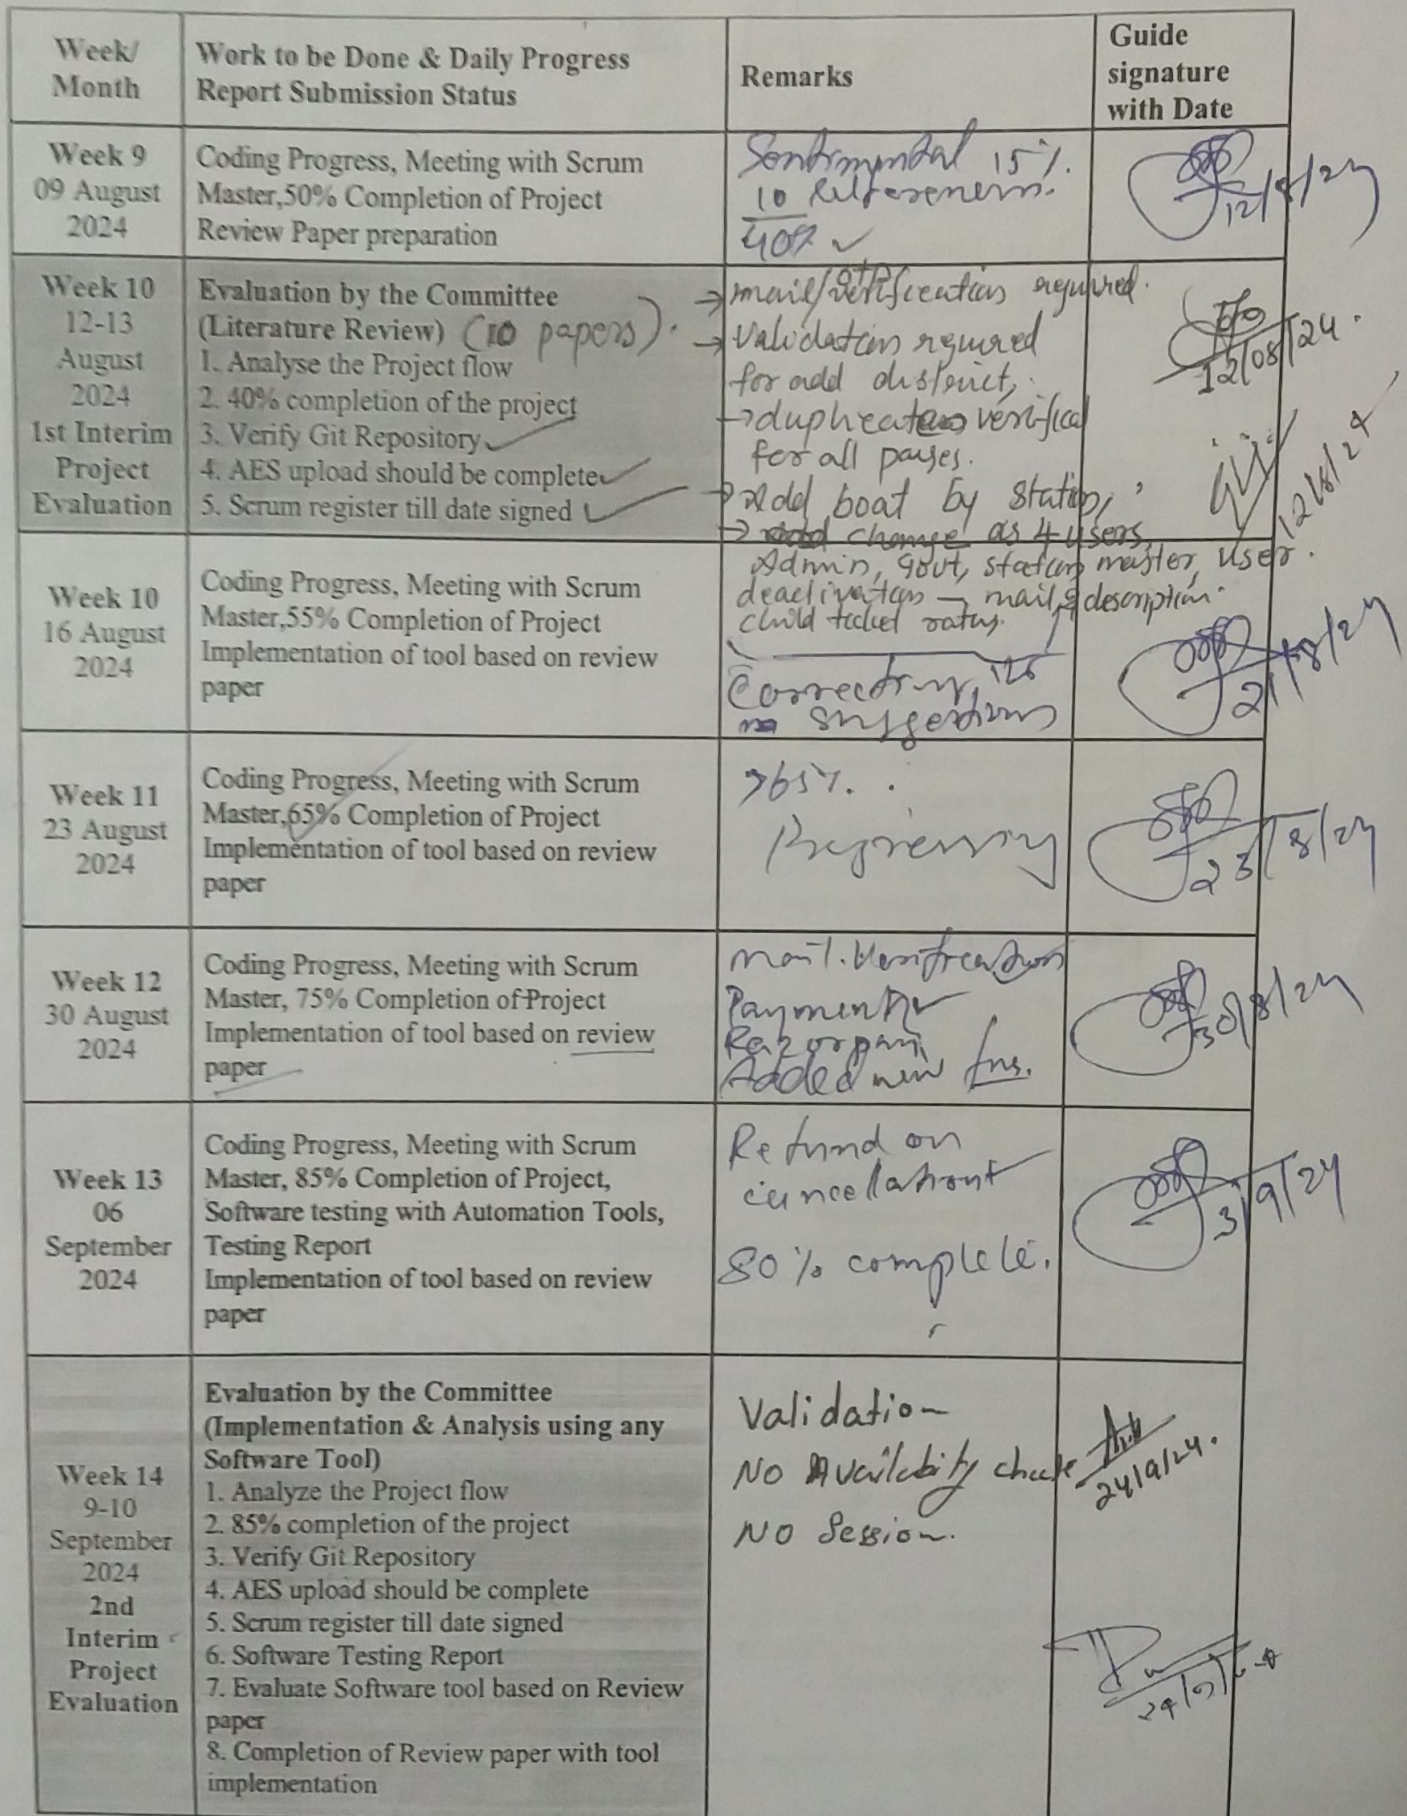 Week/
Month
Work to be Done & Daily Progress
Report Submission Status
Remarks
Guide
signature
with Date
Week 9
09 August
2024
Coding Progress, Meeting with Scrum
Master,50% Completion of Project
Review Paper preparation
Sentimental 15%.
10 References.
40% ✓
12/8/24
Week 10
12-13
August
2024
1st Interim
Project
Evaluation
Evaluation by the Committee
(Literature Review) (10 papers).
1. Analyse the Project flow
2. 40% completion of the project
3. Verify Git Repository ✓
4. AES upload should be complete ✓
5. Scrum register till date signed ✓
→ mail/otp verification required.
→ Validation required
for add district,
→ duplication verified
for all pages.
→ Add boat by station,
→ change as 4 users,
Admin, Govt, station master, user.
deactivation — mail & description.
child ticket rates.
12/08/24.
12/8/24
Week 10
16 August
2024
Coding Progress, Meeting with Scrum
Master,55% Completion of Project
Implementation of tool based on review
paper
Correcting the
suggestions
21/8/24
Week 11
23 August
2024
Coding Progress, Meeting with Scrum
Master,65% Completion of Project
Implementation of tool based on review
paper
>65%.
Progressing
23/8/24
Week 12
30 August
2024
Coding Progress, Meeting with Scrum
Master, 75% Completion of Project
Implementation of tool based on review
paper
Mail. Verification
Payment
Razorpay
Added new fns.
30/8/24
Week 13
06
September
2024
Coding Progress, Meeting with Scrum
Master, 85% Completion of Project,
Software testing with Automation Tools,
Testing Report
Implementation of tool based on review
paper
Refund on
cancellation
80% complete.
3/9/24
Week 14
9-10
September
2024
2nd
Interim
Project
Evaluation
Evaluation by the Committee
(Implementation & Analysis using any
Software Tool)
1. Analyze the Project flow
2. 85% completion of the project
3. Verify Git Repository
4. AES upload should be complete
5. Scrum register till date signed
6. Software Testing Report
7. Evaluate Software tool based on Review
paper
8. Completion of Review paper with tool
implementation
Validation
NO Availability check
NO Session.
24/9/24.